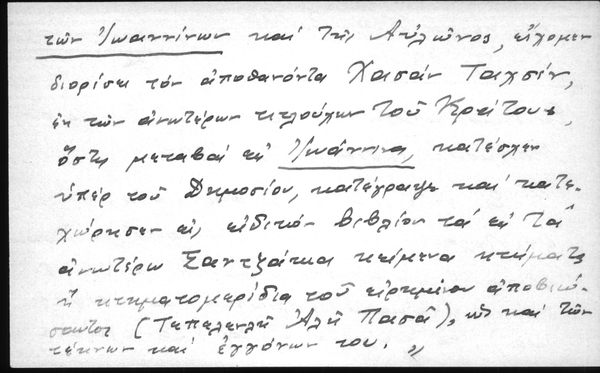 τῶν Ἰωαννίνων καί τῆς Αὐλῶνος, εἴχομεν
διορίσει τόν ἀποθανόντα Χασάν Ταχσίν,
ἐκ τῶν ἀνωτέρων τιτλούχων τοῦ Κράτους,
ὅστις μεταβάς εἰς Ἰωάννινα, κατέσχεν
ὑπέρ τοῦ Δημοσίου, κατέγραψε καί κατε-
χώρησεν εἰς εἰδικόν βιβλίον τά εἰς τά
ἀνωτέρω Σαντζάκια κείμενα κτήματα
ἤ κτηματομερίδια τοῦ εἰρημένου ἀποβιώ-
σαντος (Τεπελενλῆ Ἀλῆ Πασᾶ), ὡς καί τῶν
τέκνων καί ἐγγόνων του. »